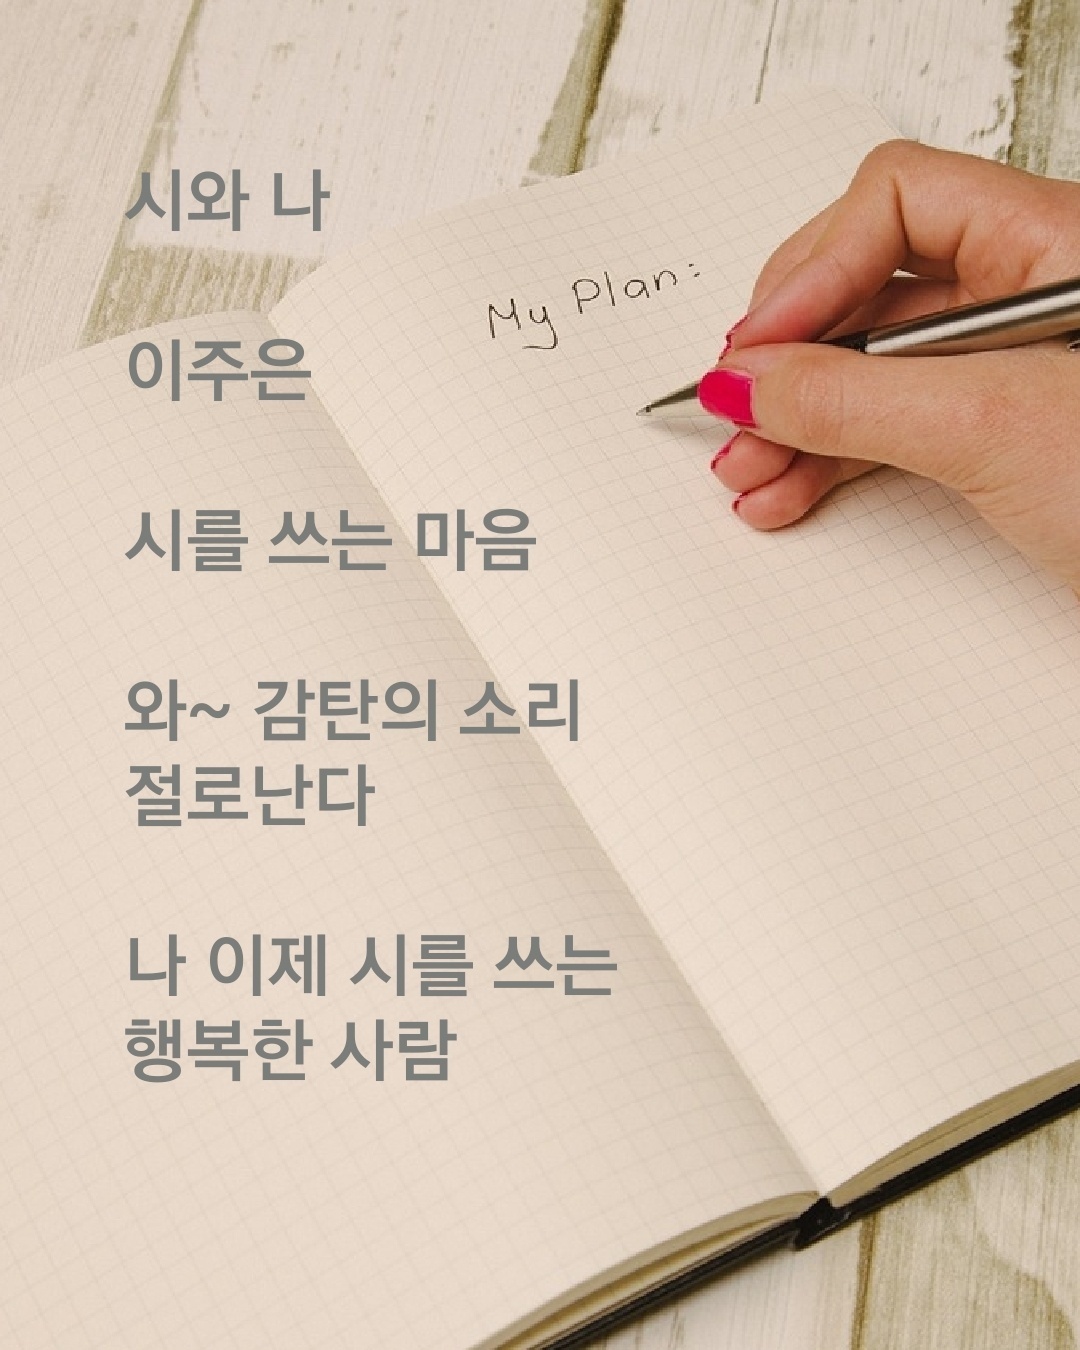 시와 나
My Plan:
이주은
시를 쓰는 마음
와~ 감탄의 소리
절로난다
나 이제 시를 쓰는
행복한 사람